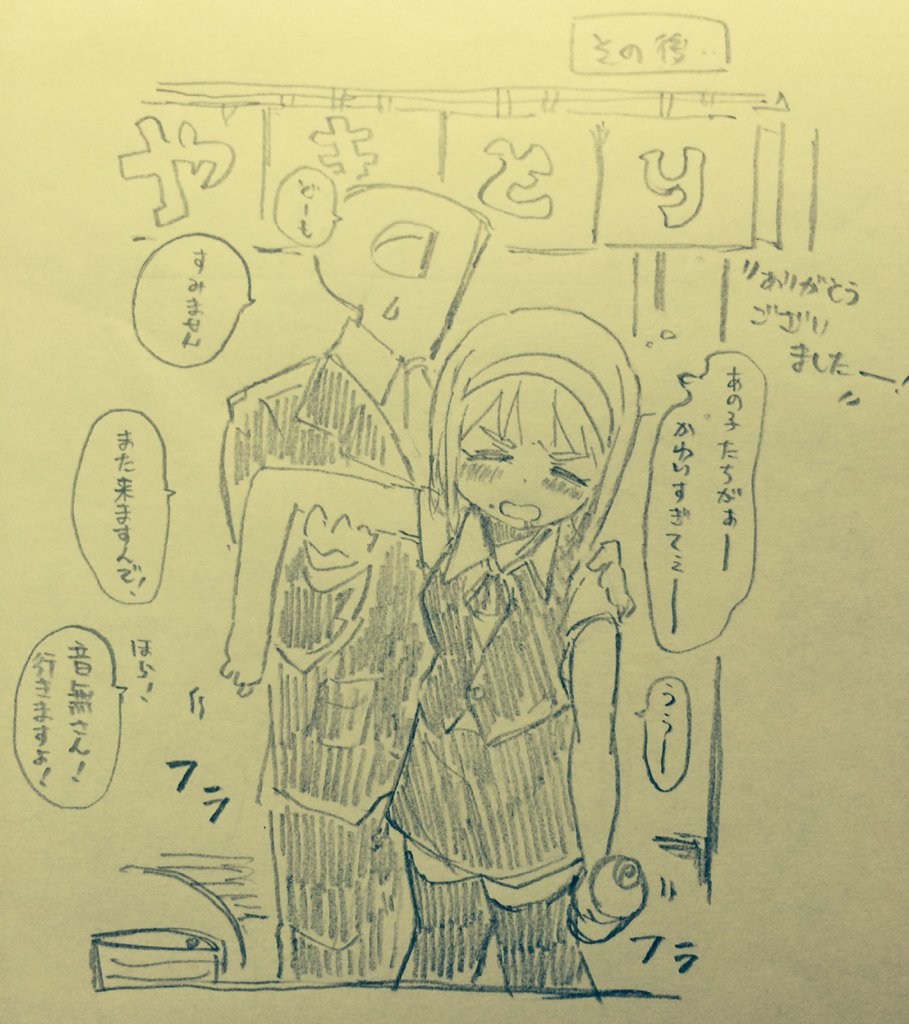 その後‥
やきとり
どーも
すみません
〃ありがとう
ございい
ましたー!〃
あの子たちがぁー
かわいすぎてぇー
また来ますんで!
ほら!
音無さん!
行きますよ!
ううー
フラ
フラ